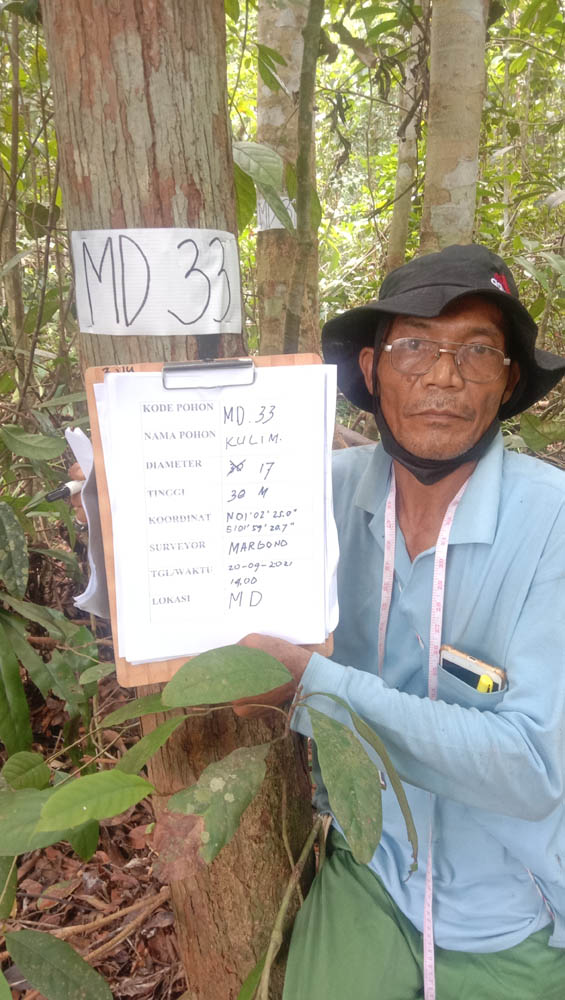 MD 33
KODE POHON MD.33
NAMA POHON KULIM.
DIAMETER 17
TINGGI 30 M
KOORDINAT N 01° 02' 25.0"
E 101° 59' 20.7"
SURVEYOR MARGONO
TGL/WAKTU 20-09-2021
14.00
LOKASI MD